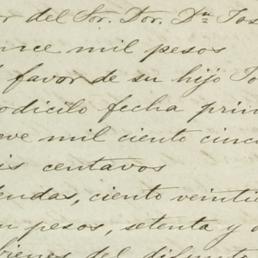 r del Sor. Dor. Dn Jos
once mil pesos
favor de su hijo Jo
odicilo fecha prim
eve mil ciento cinc
is centavos
endas, ciento veinti
n pesos, setenta y d
bienes del difunto